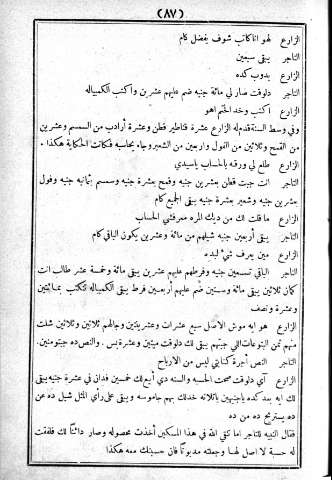 (٨٧)
الزارع لهو انا كاتب شوف يفضل كام
التاجر يبقى سبعين
الزارع بدوب كده
التاجر دلوقت صار لي مائة جنيه ضم عليهم عشرين واكتب الكمبياله
الزارع اكتب وخد الختم اهو
وفي وسط السنة قدم له الزارع عشرة قناطير قطن وعشرة أرادب من السمسم وعشرين
من القمح وثلاثين من الفول واربعين من الشعير وجاء يحاسبه فكانت الحكاية هكذا .
الزارع طلع لي ورقه بالحساب ياسيدي
التاجر انت جبت قطن بعشرين جنيه وقمح بعشرة جنيه وسمسم بثمانيه جنيه وفول
بعشرين جنيه وشعير بعشرة جنيه يبقى الجميع كام
الزارع ما قلت لك من ديك المره معرفشي الحساب
التاجر يبقى أربعين جنيه شيلهم من مائة وعشرين يكون الباقي كام
الزارع مين يعرف شيء لبده
التاجر الباقي تسعين جنيه وفرطهم عليهم عشرين يبقى مائة وخمسة عشر طالب انت
كمان ثلاثين يبقى مائة وستين ضم عليهم أربعين فرط يبقى الكمبياله تنكتب بمائتين
وعشرة ونصف
الزارع هو ايه موش الاصل سبع عشرات وعشريتين وجالهم ثلاثين وثلاثين شلت
منهم ثمن البتوعات اللي جبتهم يبقى لك دلوقت ميتين وعشرة بس . والنص ده جبتو منين.
التاجر النص أجرة كتابتي ليس من الارباح
الزارع أي دلوقت صحت الحسبه والسنه دي أبيع لك خمسين فدان في عشرة جنيه يبقى
لك ايه بعد كده ياجنيهين ياتلاته خدلك بهم جاموسه ويبقى على رأي المثل شيل ده عن
ده يستريح ده من ده
فقال النبيه للتاجر اما تتقي الله في هذا المسكين أخذت محصوله وصار دائنًا لك فلفقت
له حسبة لا اصل لها وجعلته مديونًا فان حسبتك معه هكذا